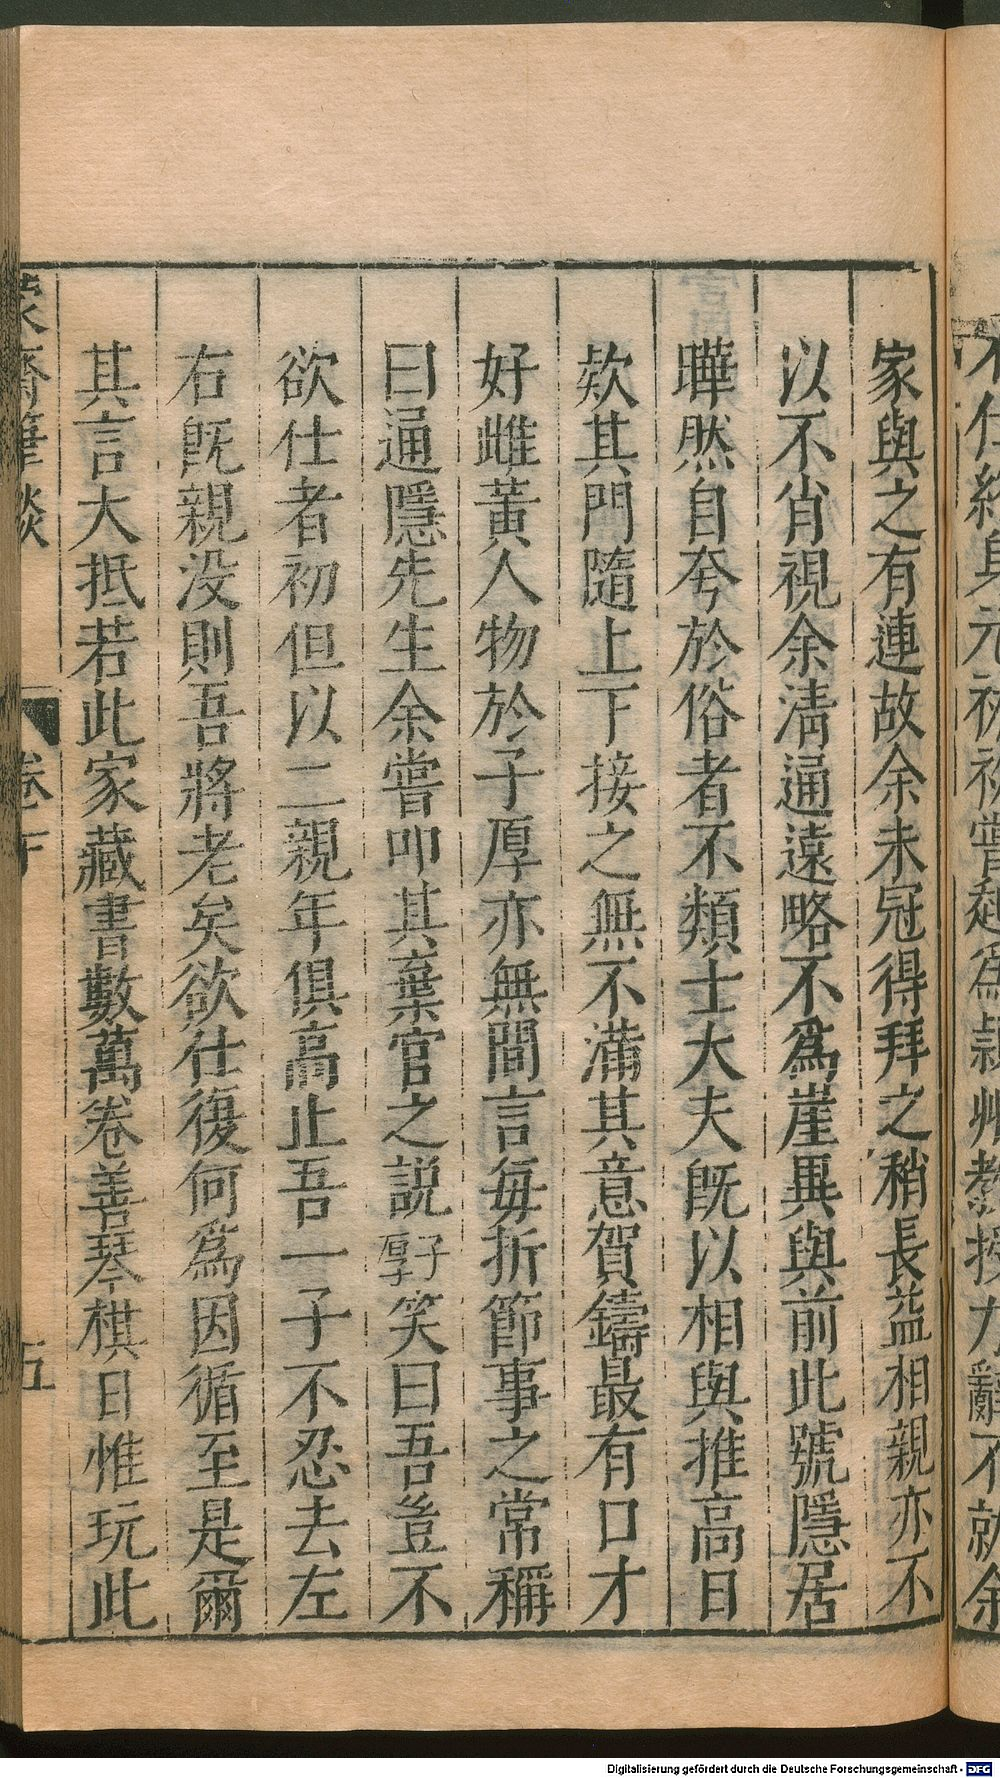 不仕終身元祐初嘗起為潁州教授力辭不就余
家與之有連故余未冠得拜之稍長益相親亦不
以不肖視余淸通遠略不爲崖異與前此號隱居
曄然自夸於俗者不類士大夫旣以相與推高日
欵其門隨上下接之無不滿其意賀鑄最有口才
好雌黃人物於子厚亦無間言每折節事之常稱
曰通隱先生余嘗叩其棄官之說子厚笑曰吾豈不
欲仕者初但以二親年俱高止吾一子不忍去左
右旣親没則吾將老矣欲仕復何爲因循至是爾
其言大抵若此家藏書數萬卷善琴棋日惟玩此
蒙齋筆談 卷下 五
Digitalisierung gefördert durch die Deutsche Forschungsgemeinschaft - DFG